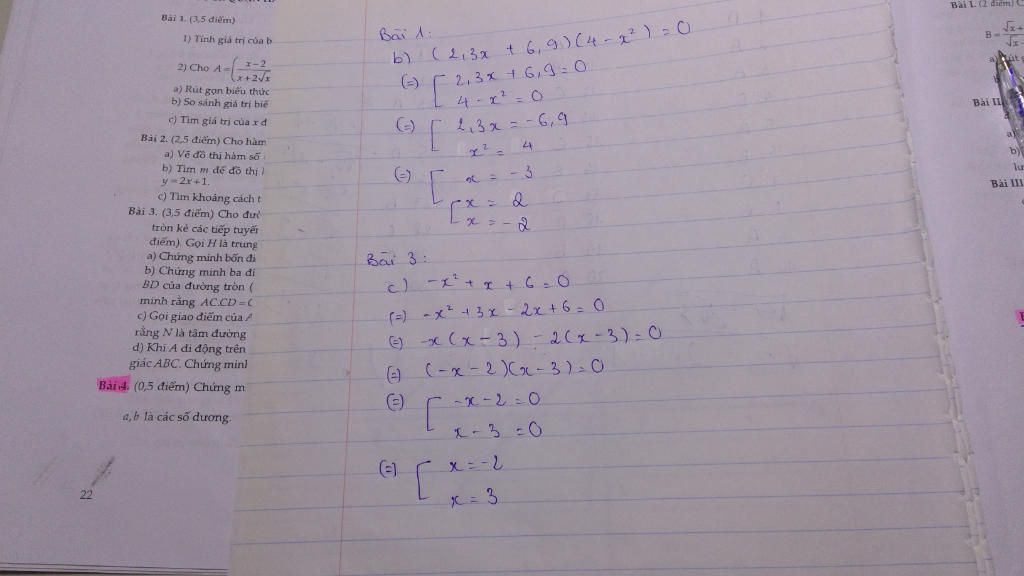 Bài 1. (3,5 điểm)
1) Tính giá trị của b
2) Cho A = (x-2 / x+2√x
a) Rút gọn biểu thức
b) So sánh giá trị biể
c) Tìm giá trị của x đ
Bài 2. (2,5 điểm) Cho hàm
a) Vẽ đồ thị hàm số
b) Tìm m để đồ thị
y = 2x+1.
c) Tìm khoảng cách t
Bài 3. (3,5 điểm) Cho đườ
tròn kẻ các tiếp tuyế
điểm). Gọi H là trung
a) Chứng minh bốn đi
b) Chứng minh ba đi
BD của đường tròn (
minh rằng AC.CD = C
c) Gọi giao điểm của A
rằng N là tâm đường
d) Khi A di động trên
giác ABC. Chứng minh
Bài 4. (0,5 điểm) Chứng m
a, b là các số dương.
22
Bài 1:
b) (2,3x + 6,9)(4 - x²) = 0
(=) [ 2,3x + 6,9 = 0
4 - x² = 0
(=) [ 2,3x = -6,9
x² = 4
(=) [ x = -3
[ x = 2
x = -2
Bài 3:
c) -x² + x + 6 = 0
(=) -x² + 3x - 2x + 6 = 0
(=) -x(x - 3) - 2(x - 3) = 0
(=) (-x - 2)(x - 3) = 0
(=) [ -x - 2 = 0
x - 3 = 0
(=) [ x = -2
x = 3
Bài I. (2 điểm) C
B = √x+ / √x -
Bài II
b)
Bài III